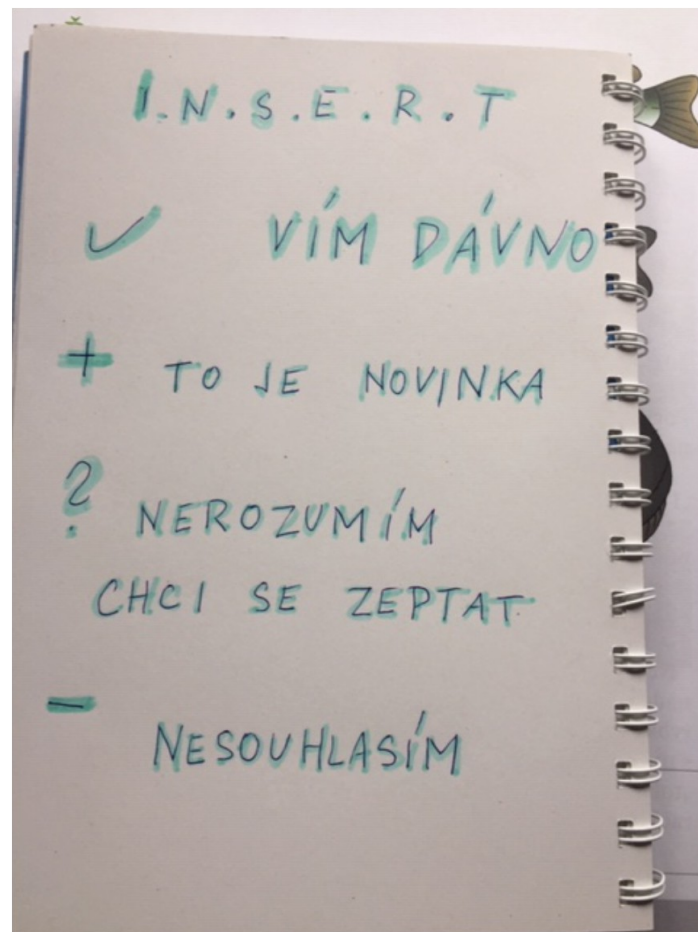 I.N.S.E.R.T
✓ VÍM DÁVNO
+ TO JE NOVINKA
? NEROZUMÍM
CHCI SE ZEPTAT
- NESOUHLASÍM